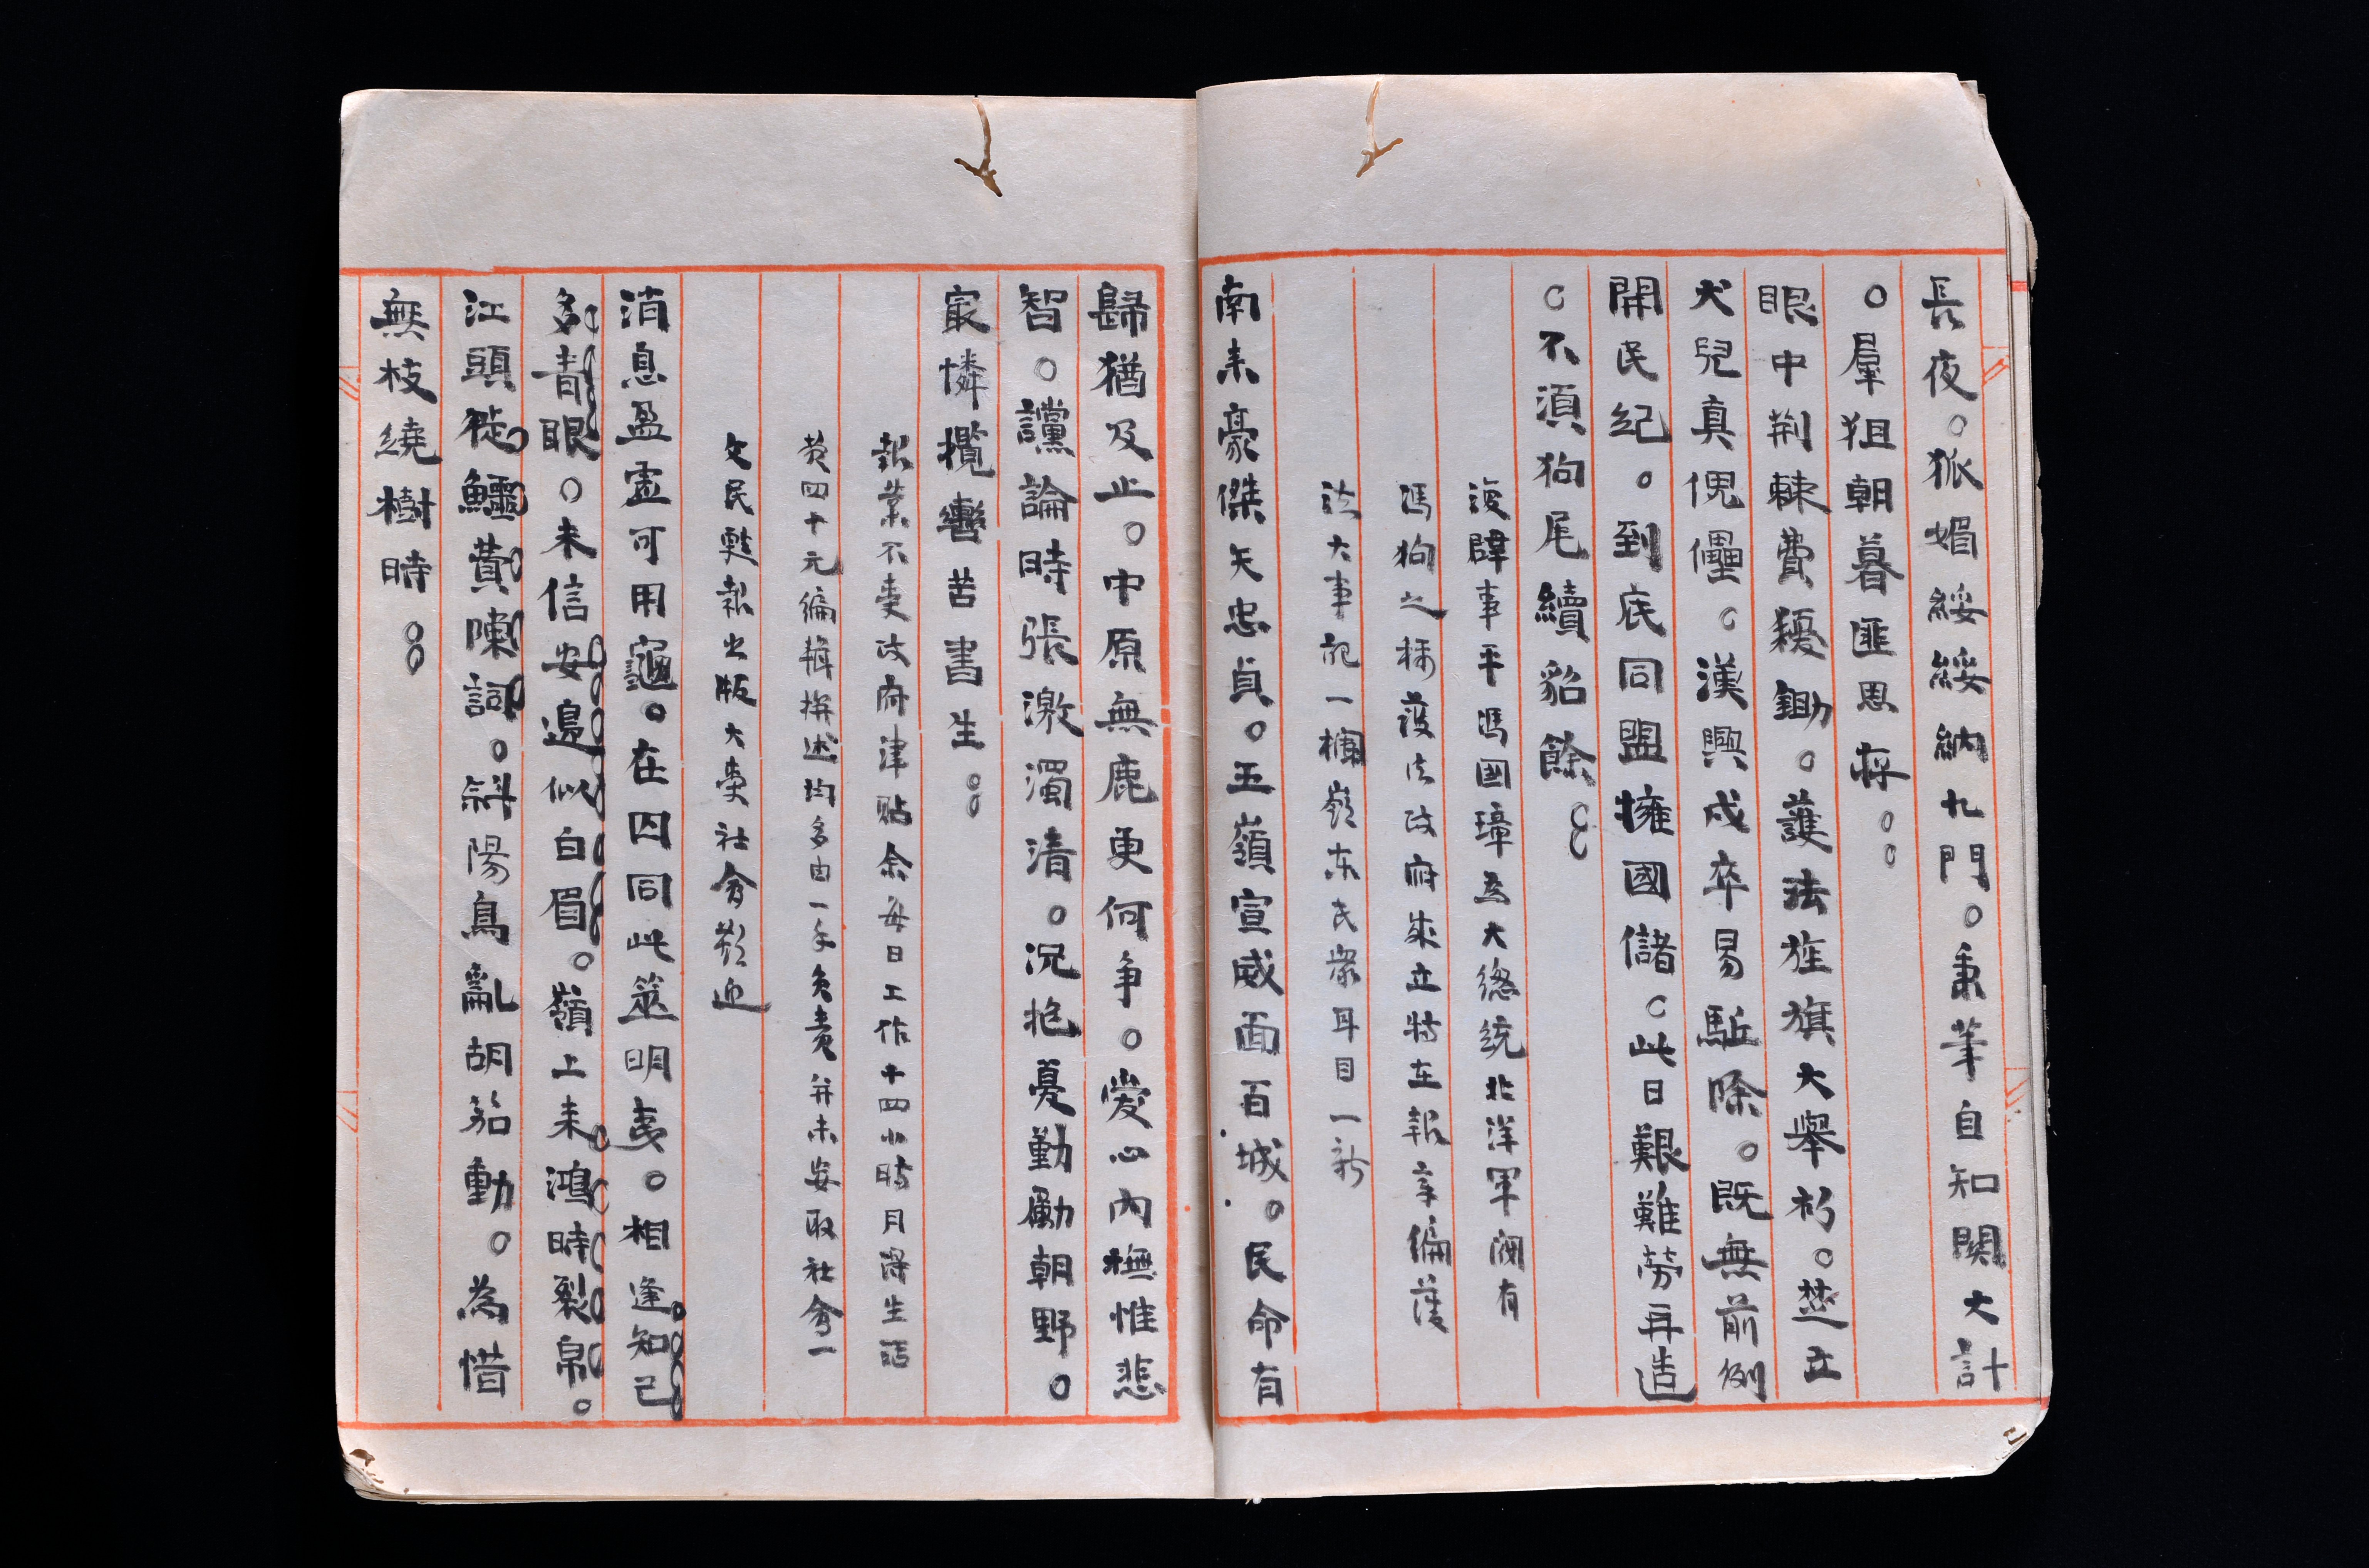 長夜。狐媚綏綏納九門。秉筆自知關大計
。羣狙朝暮匪思存。。
眼中荆棘費耰鋤。護法旌旗大舉初。楚立
犬兒真傀儡。漢興戍卒易駈除。既無前例
開民紀。到底同盟擁國儲。此日艱難勞再造
。不須狗尾續貂餘。。
復辟事平馮國璋為大總統北洋軍閥有
馮狗之稱護法政府成立特在報章編護
法大事記一欄嶺东民衆耳目一新
南来豪傑矢忠貞。五嶺宣威面百城。民命有
歸猶及止。中原無鹿更何争。愛心內憮惟悲
智。讜論時張激濁清。况抱憂勤勵朝野。
最憐攬轡苦書生。。
報業不受政府津貼余每日工作十四小時月得生活
费四十元編輯撰述均多由一手负責并未妄取社會一
文民甦報出版大受社會歡迎
消息盈虛可用龜。在囚同此筮明夷。相逢知己
多青眼。未信安邉似白眉。嶺上来鴻時裂帛。
江頭徙鱷費陳詞。斜陽鳥亂胡笳動。為惜
無枝繞樹時。。